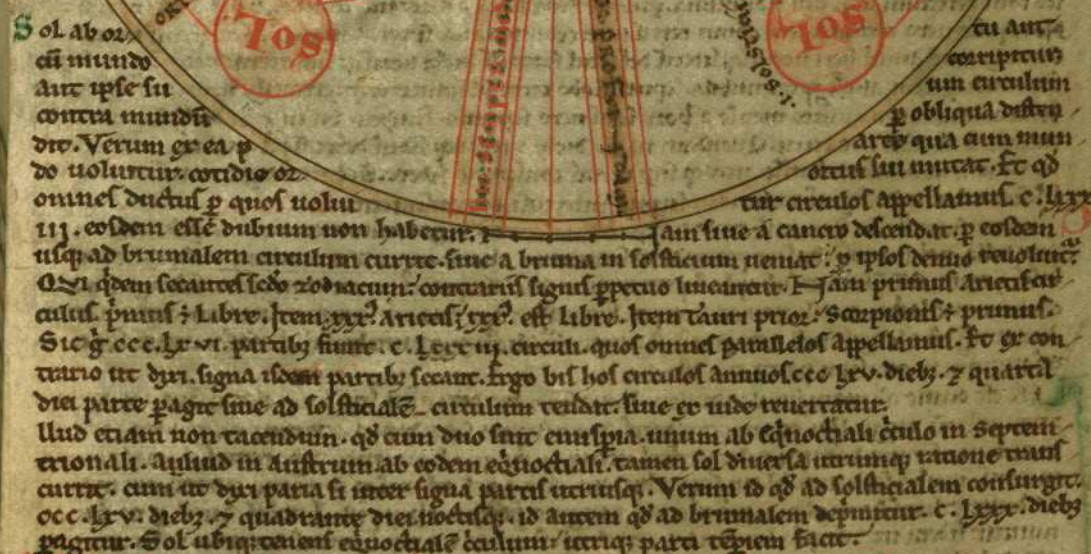 SOL SOL
Sol ab or tu aut
cu mundo corripitur
aut ipse su um circulum
contra mundu p obliqua disten
dit. Verum ex ea p arte qua cum mun
do voluitur cotidie or ortus sui mutat. Et qd
omnes ductus p quos volui tur circulos appellamus. c. lxx
iii. eosdem esse dubium non habetur. Jam sive a cancro descendat. p eosdem
usq ad brumalem circulum currit. sive a bruma in solsticium veniat. p ipsos denuo
Qui qdem secantes zodiacum contrariis signis ppetuo Nam primus arietis cir
culus. primus ÷ Libre. Item xxx arietis. xxx. est libre. Item tauri prior. Scorpionis ÷ primus.
Sic g ccc. lx vi. partib; fiunt. c. lxxx iii. circuli. quos omnes parallelos appellamus. Et ex con
trario ut dixi. signa isdem partib; secant. Ergo bis hos circulos annuos ccc lxv. dieb; 7 quarta
diei parte pagit sive ad solsticiale circulum tendat. sive ex inde revertatur.
llud etiam non tacendum. qd cum duo sint emispia. unum ab eqnoctiali cculo in septem
trionali. aliud in austrum ab eodem eqnoctiali. tamen sol diversa utrumq ratione trans
currit. cum ut dixi paria si inter signa partis utriusq. Verum id qd ad solsticialem consurgit.
ccc. lxv. dieb; 7 quadrante diei noctisq. id autem qd ad brumalem deprimitur. c. lxxx. dieb;
pagitur. Sol ubiq tenens eqnoctiale cculum utriq parti tepiem facit.